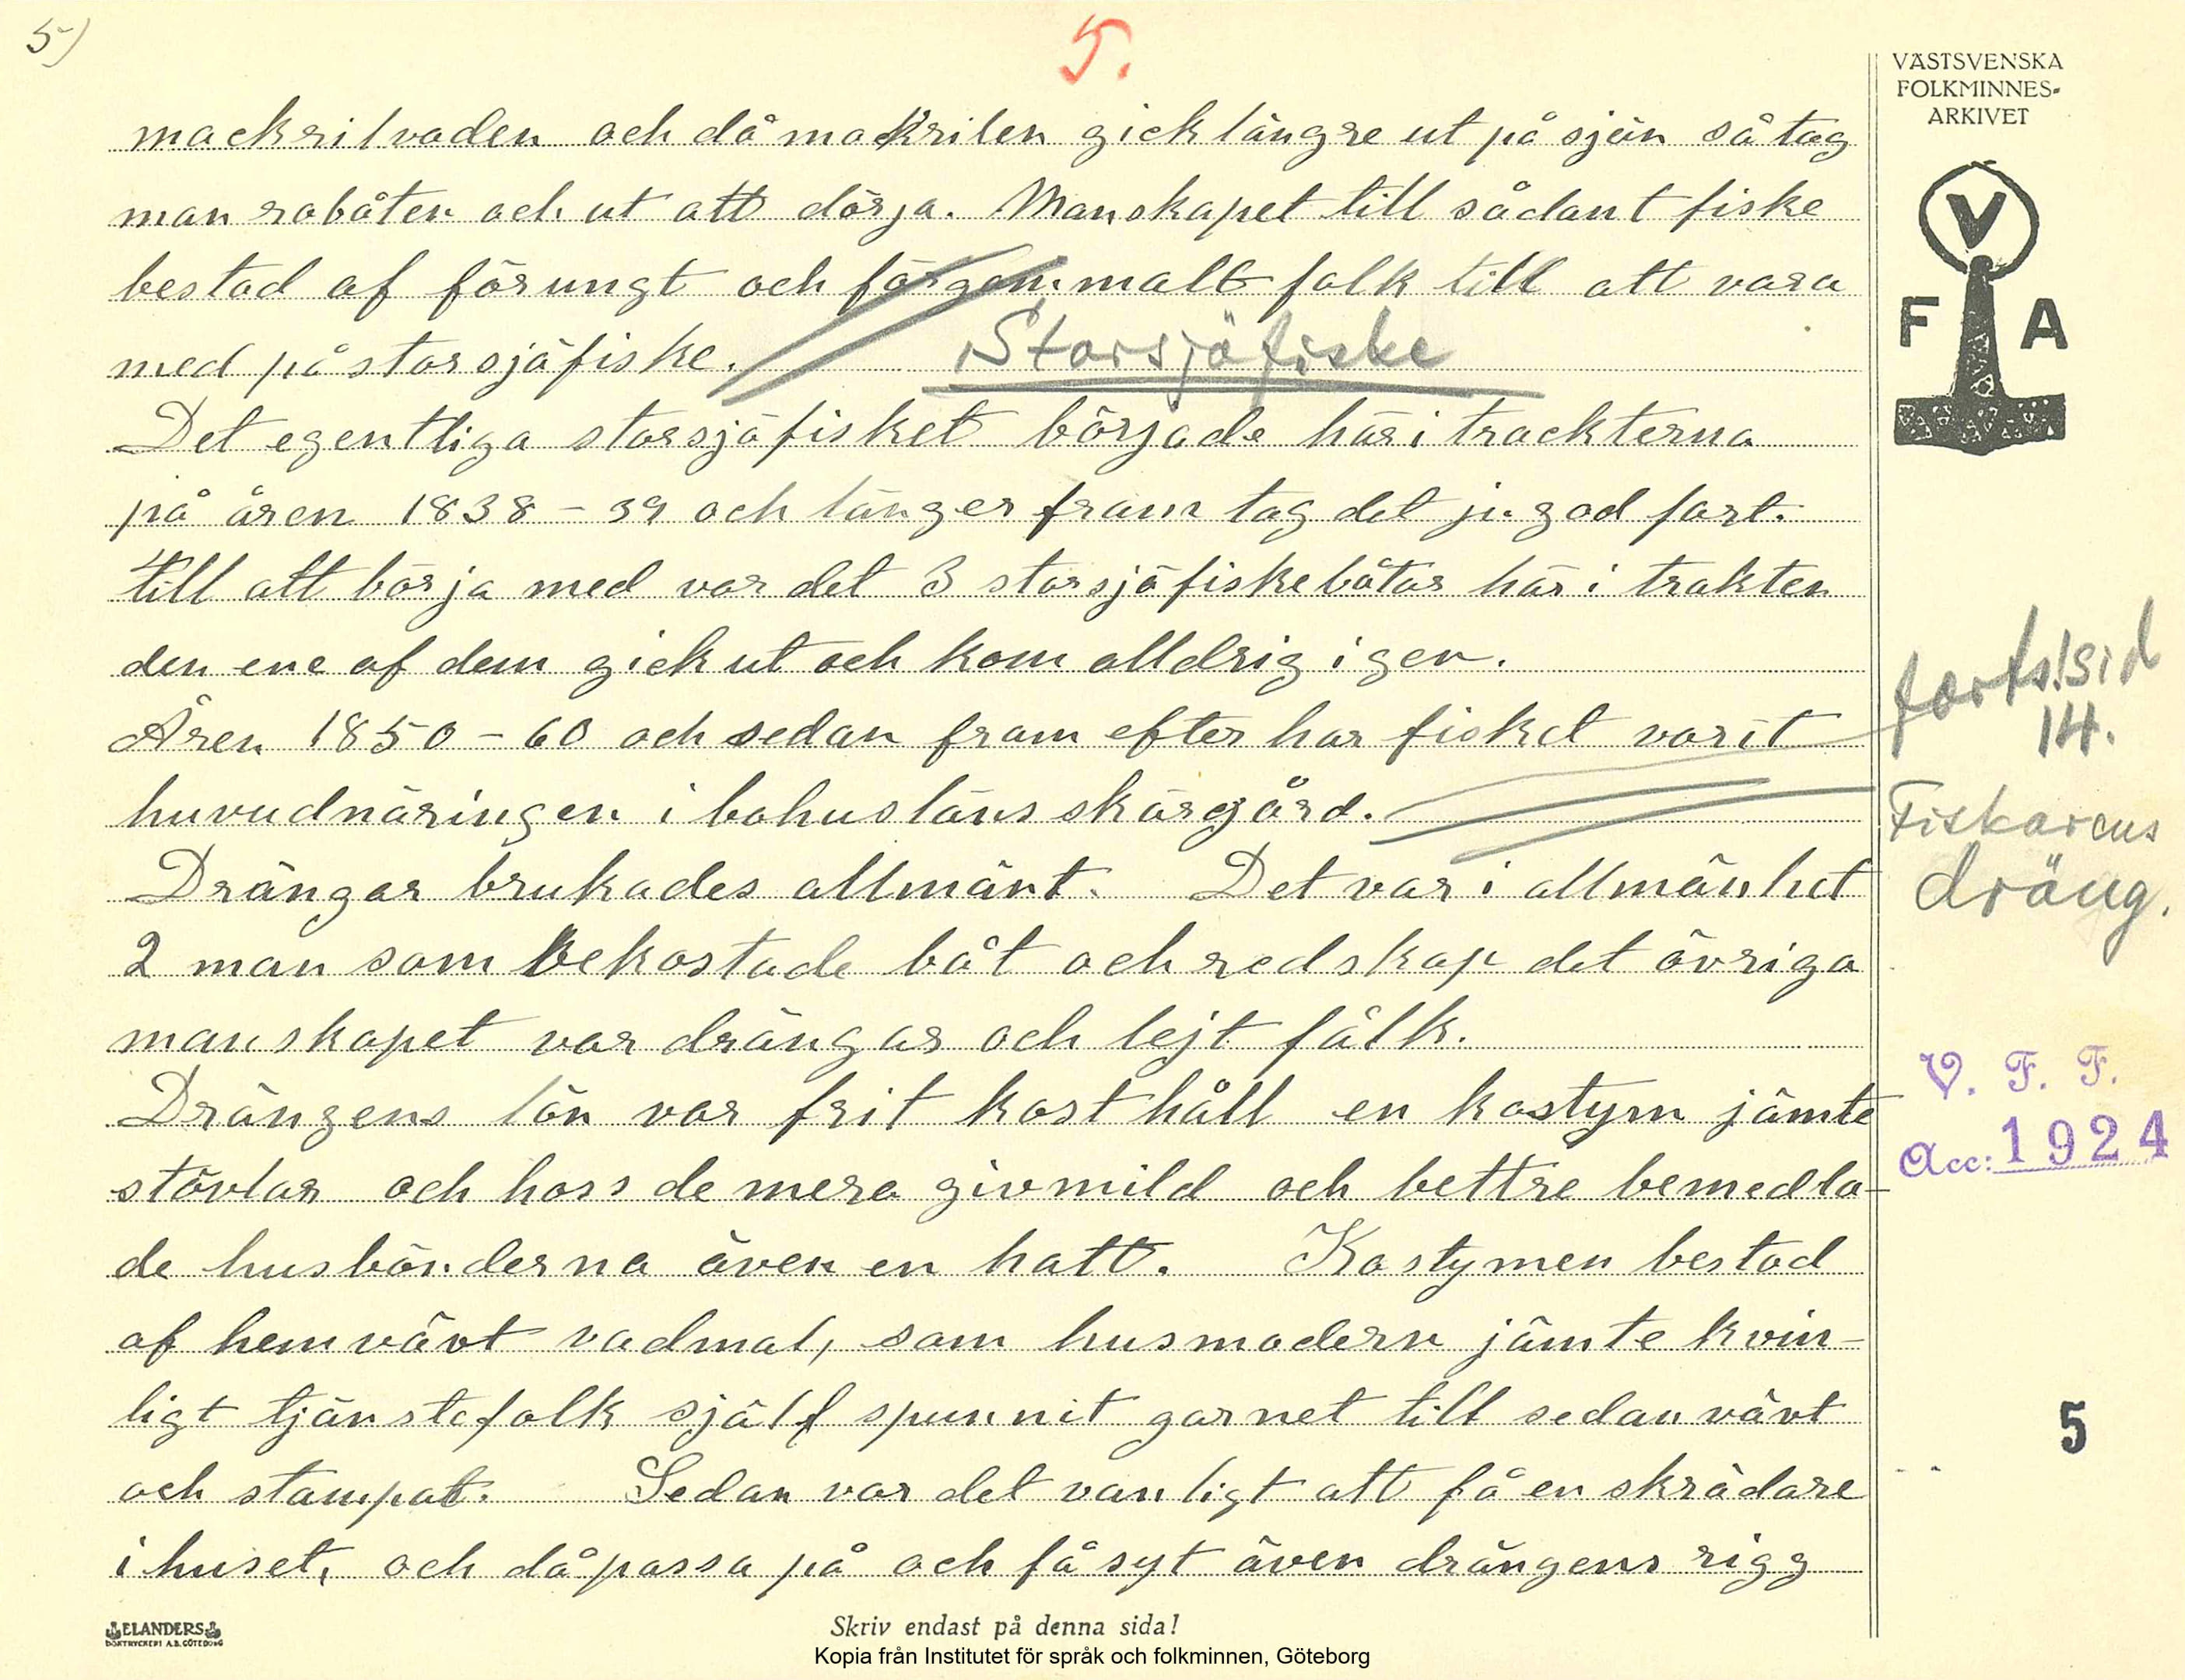 5)
5.
VÄSTSVENSKA
FOLKMINNES-
ARKIVET
mackrilvaden och då mackrilen gick längre ut på sjön så tog
man robåten och ut att dörja. Manskapet till sådant fiske
bestod af förungt och förgammalt folk till att vara
med på storsjöfiske.
Storsjöfiske
Det egentliga storsjöfisket började här i trackterna
på åren 1838 – 39 och länger fram tog det ju god fart.
till att börja med var det 3 storsjöfiskebåtar här i trakten
den ene af dem gick ut och kom alldrig igen.
Åren 1850 – 60 och sedan fram efter har fisket varit
huvudnäringen i bohusläns skärgård.
Drängar brukades allmänt. Det var i allmänhet
2 man som bekostade båt och redskap det övriga
manskapet var drängar och lejt fålk.
Drängens lön var frit kost håll en kostym jämte
stövlar och hoss de mera givmild och bettre bemedla-
de husbönderna även en hatt. Kostymen bestod
af hemvävt vadmal, som husmodern jämte kvin-
ligt tjänstefolk själf spunnit garnet till sedan vävt
och stampat. Sedan var det vanligt att få en skrädare
i huset, och då passa på och få syt även drängens rigg
V
F A
forts! sid
14.
Fiskarens
dräng.
V. F. F.
Acc: 1924
5
ELANDERS
BOKTRYCKERI A.B. GÖTEBORG
Skriv endast på denna sida!
Kopia från Institutet för språk och folkminnen, Göteborg